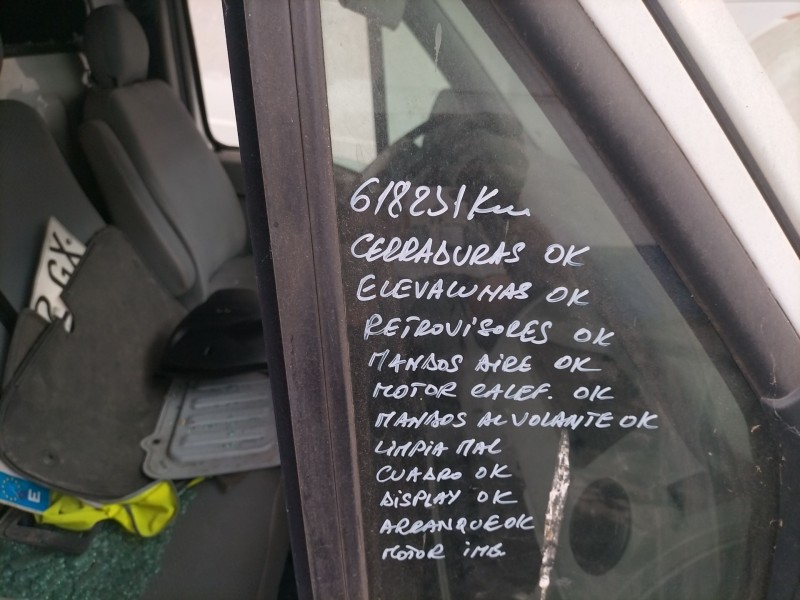 618231 Km
CERRADURAS OK
ELEVALUNAS OK
RETROVISORES OK
MANDOS AIRE OK
MOTOR CALEF. OK
MANDOS AL VOLANTE OK
LIMPIA MAL
CUADRO OK
DISPLAY OK
ARRANQUE OK
MOTOR IMB
GX
E